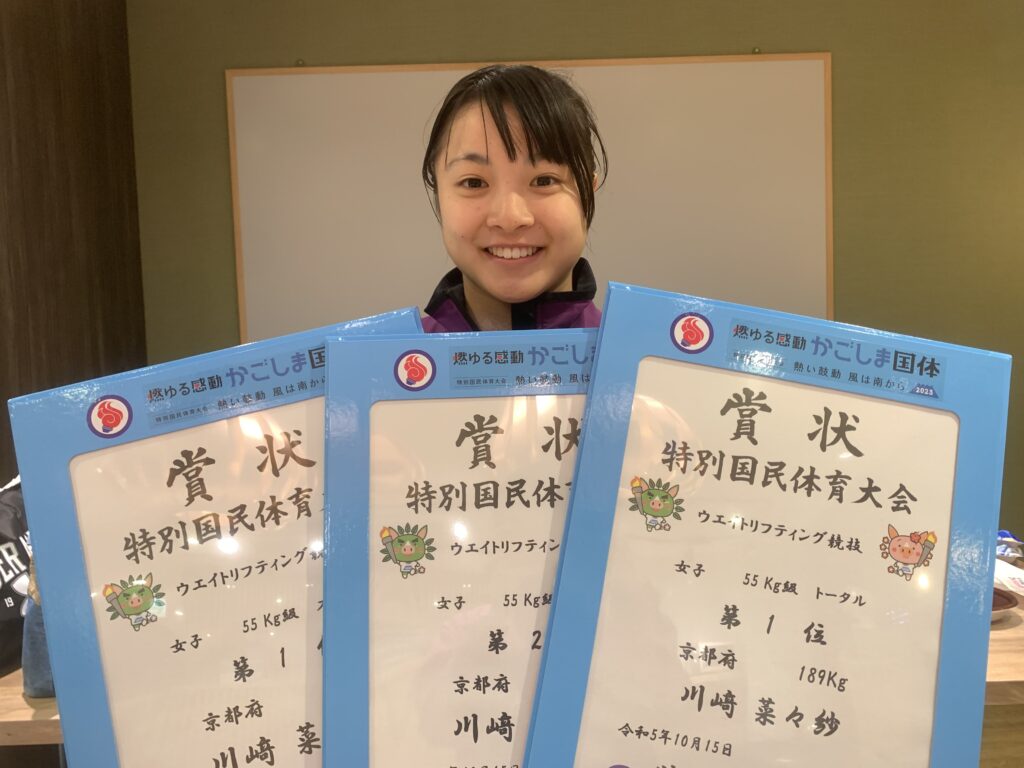 燃ゆる感動 かごしま国
特別国民体育大会 熱い鼓動 風は南から
賞 状
特別国民体育
ウエイトリフティング競
女子 55Kg級
第 1
京都府
川﨑 菜
燃ゆる感動 かごしま
特別国民体育大会 熱い鼓動 風は南
賞 状
特別国民体
ウエイトリフティン
女子 55Kg級
第 2
京都府
川﨑
燃ゆる感動 かごしま国体
熱い鼓動 風は南から 2023
賞 状
特別国民体育大会
ウエイトリフティング競技
女子 55Kg級 トータル
第 1 位
京都府 189Kg
川﨑 菜々紗
令和5年10月15日
19